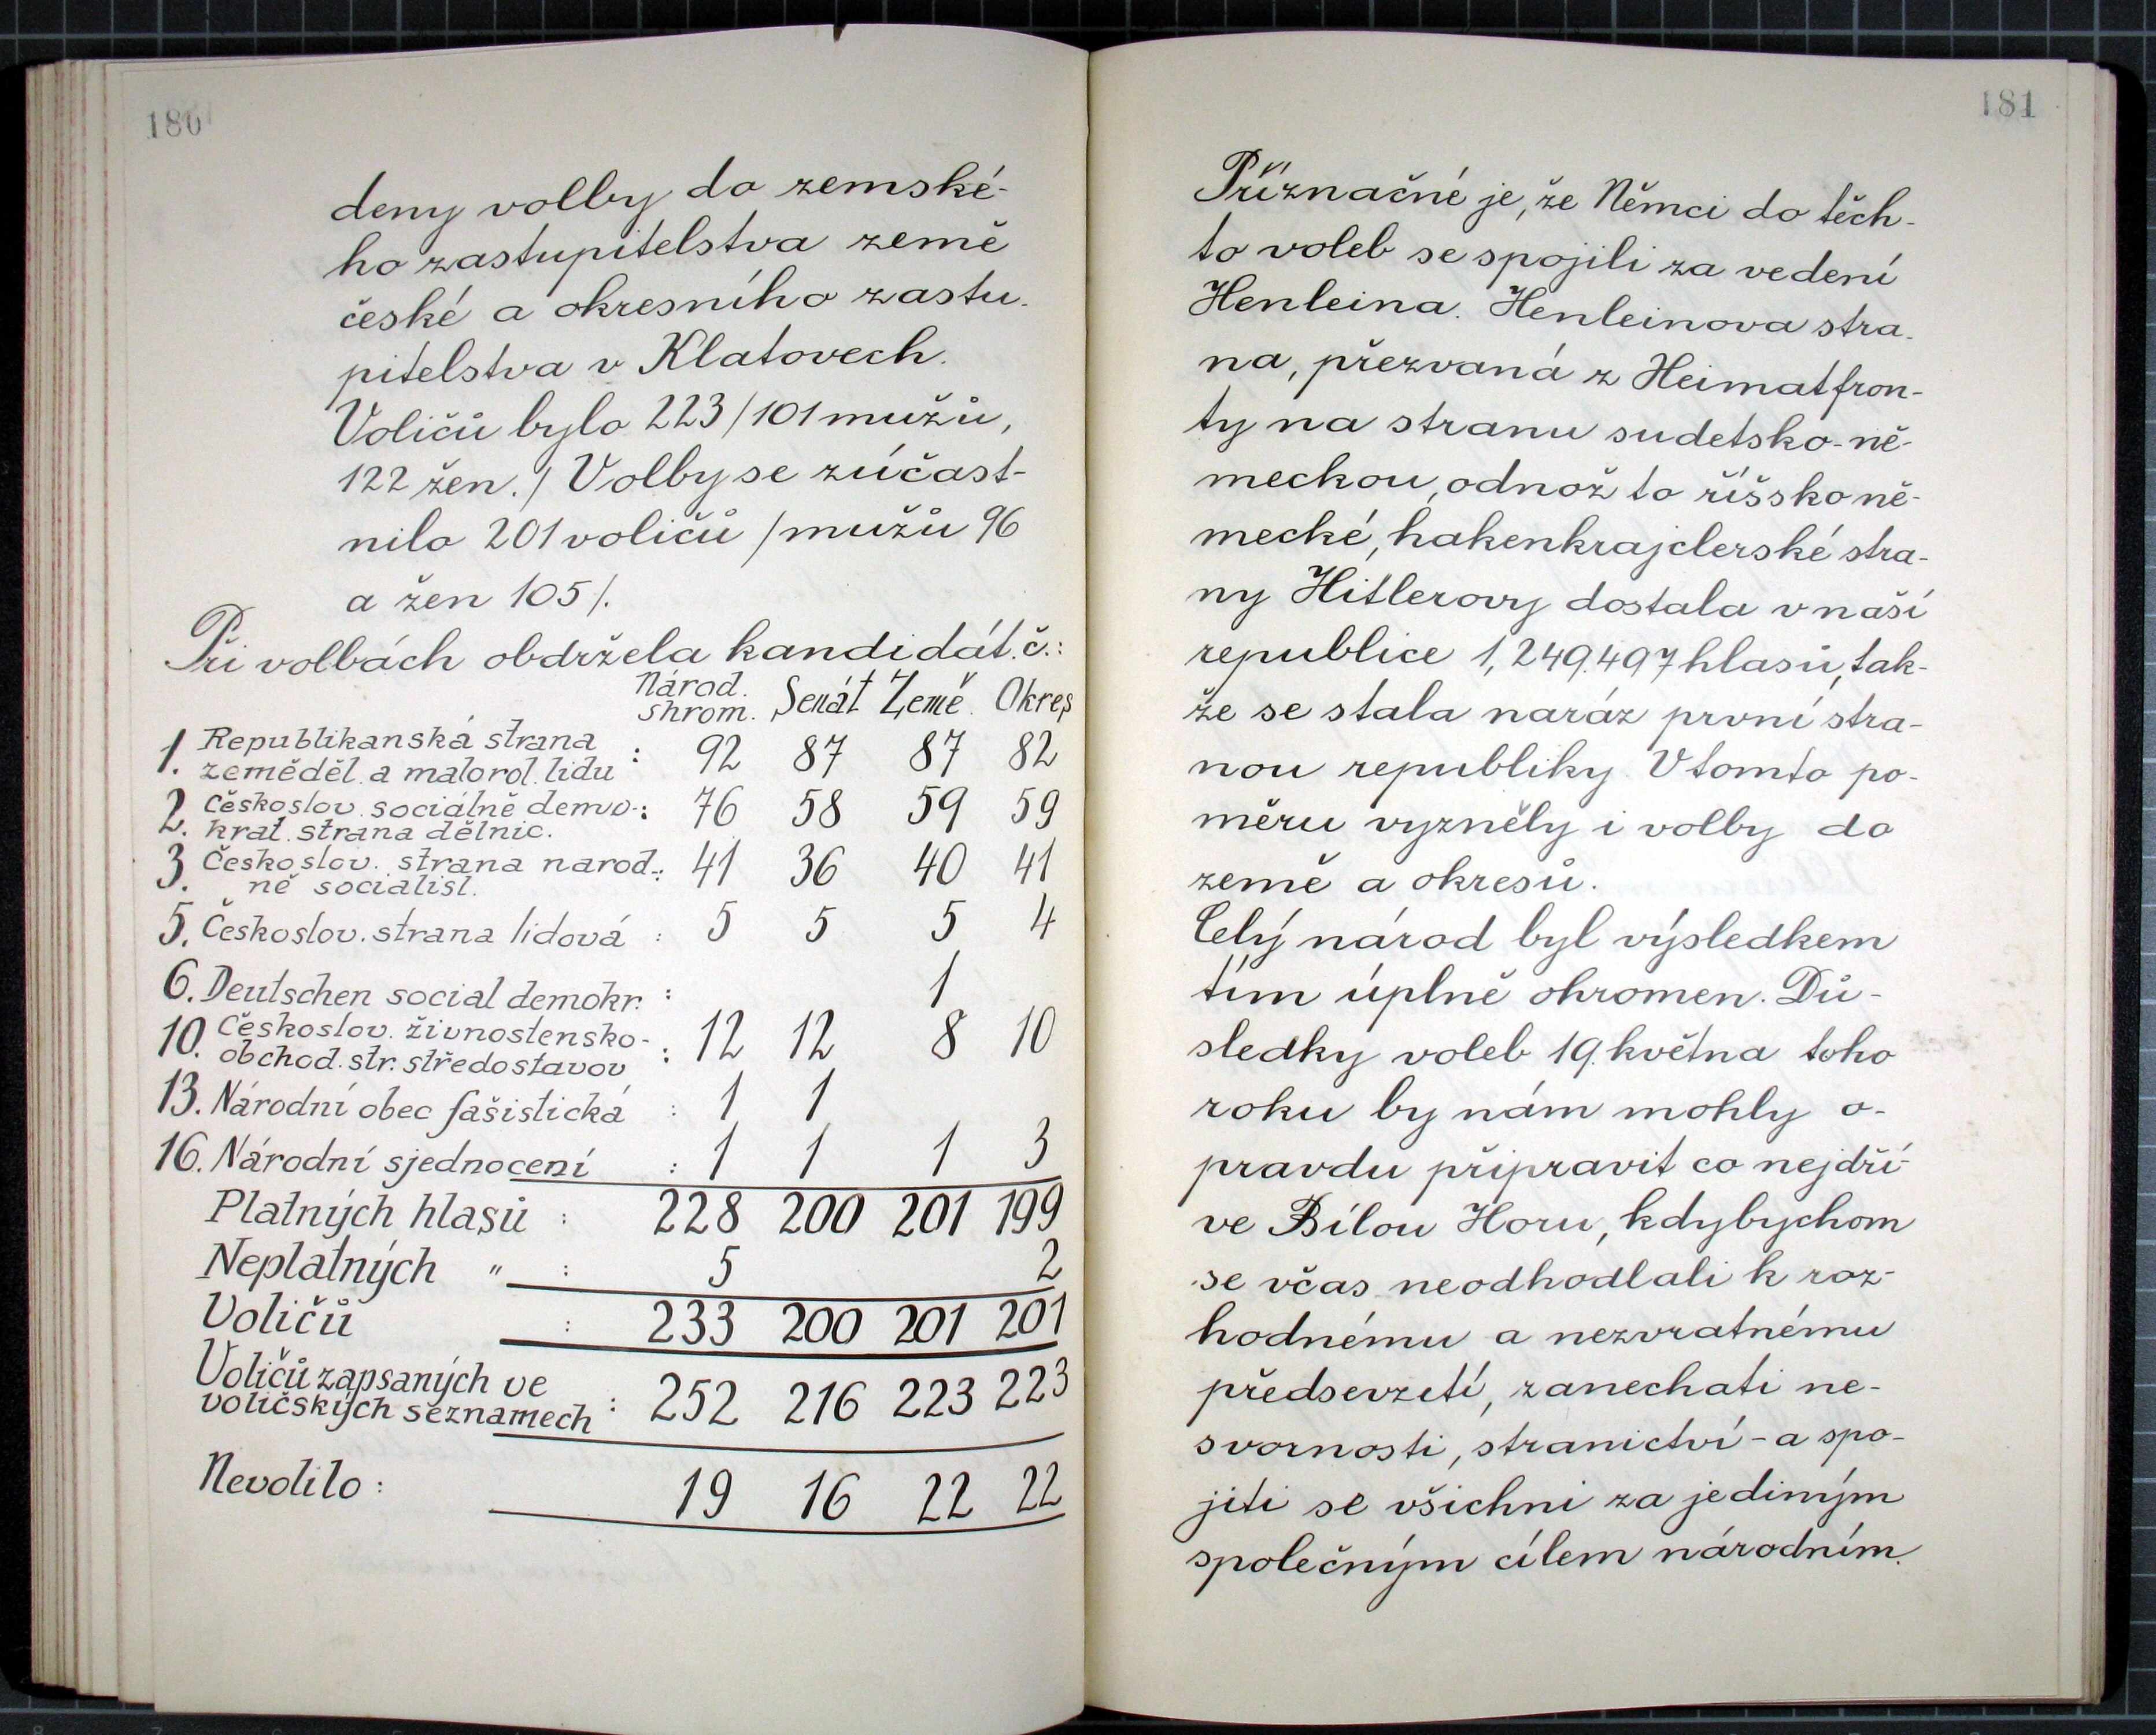 180
deny volby do zemské-
ho zastupitelstva země
české a okresního zastu-
pitelstva v Klatovech.
Voličů bylo 223 /101 mužů,
122 žen./ Volby se zúčast-
nilo 201 voličů /mužů 96
a žen 105/.
Při volbách obdržela kandidát. č.:
Národ. shrom. Senát Země Okres
1. Republikanská strana
zeměděl. a malorol. lidu : 92 87 87 82
2. Českoslov. sociálně demo-: 76 58 59 59
krat. strana dělnic.
3. Českoslov. strana narod-: 41 36 40 41
ně socialist.
5. Českoslov. strana lidová : 5 5 5 4
6. Deutschen social demokr. : 1
10. Českoslov. živnostensko-
obchod. str. středostavov : 12 12 8 10
13. Národní obec fašistická : 1 1
16. Národní sjednocení : 1 1 1 3
Platných hlasů : 228 200 201 199
Neplatných " : 5 2
Voličů : 233 200 201 201
Voličů zapsaných ve
voličských seznamech : 252 216 223 223
Nevolilo : 19 16 22 22
181
Příznačné je, že Němci do těch-
to voleb se spojili za vedení
Henleina. Henleinova stra-
na, přezvaná z Heimatfron-
ty na stranu sudetsko-ně-
meckou, odnož to říšsko ně-
mecké, hakenkrajclerské stra-
ny Hitlerovy dostala v naší
republice 1,249.497 hlasů, tak-
že se stala naráz první stra-
nou republiky. V tomto po-
měru vyzněly i volby do
země a okresů.
Celý národ byl výsledkem
tím úplně ohromen. Dů-
sledky voleb 19. května toho
roku by nám mohly o-
pravdu připravit co nejdří-
ve Bílou Horu, kdybychom
se včas neodhodlali k roz-
hodnému a nezvratnému
předsevzetí, zanechati ne-
svornosti, stranictví - a spo-
jiti se všichni za jediným
společným cílem národním.